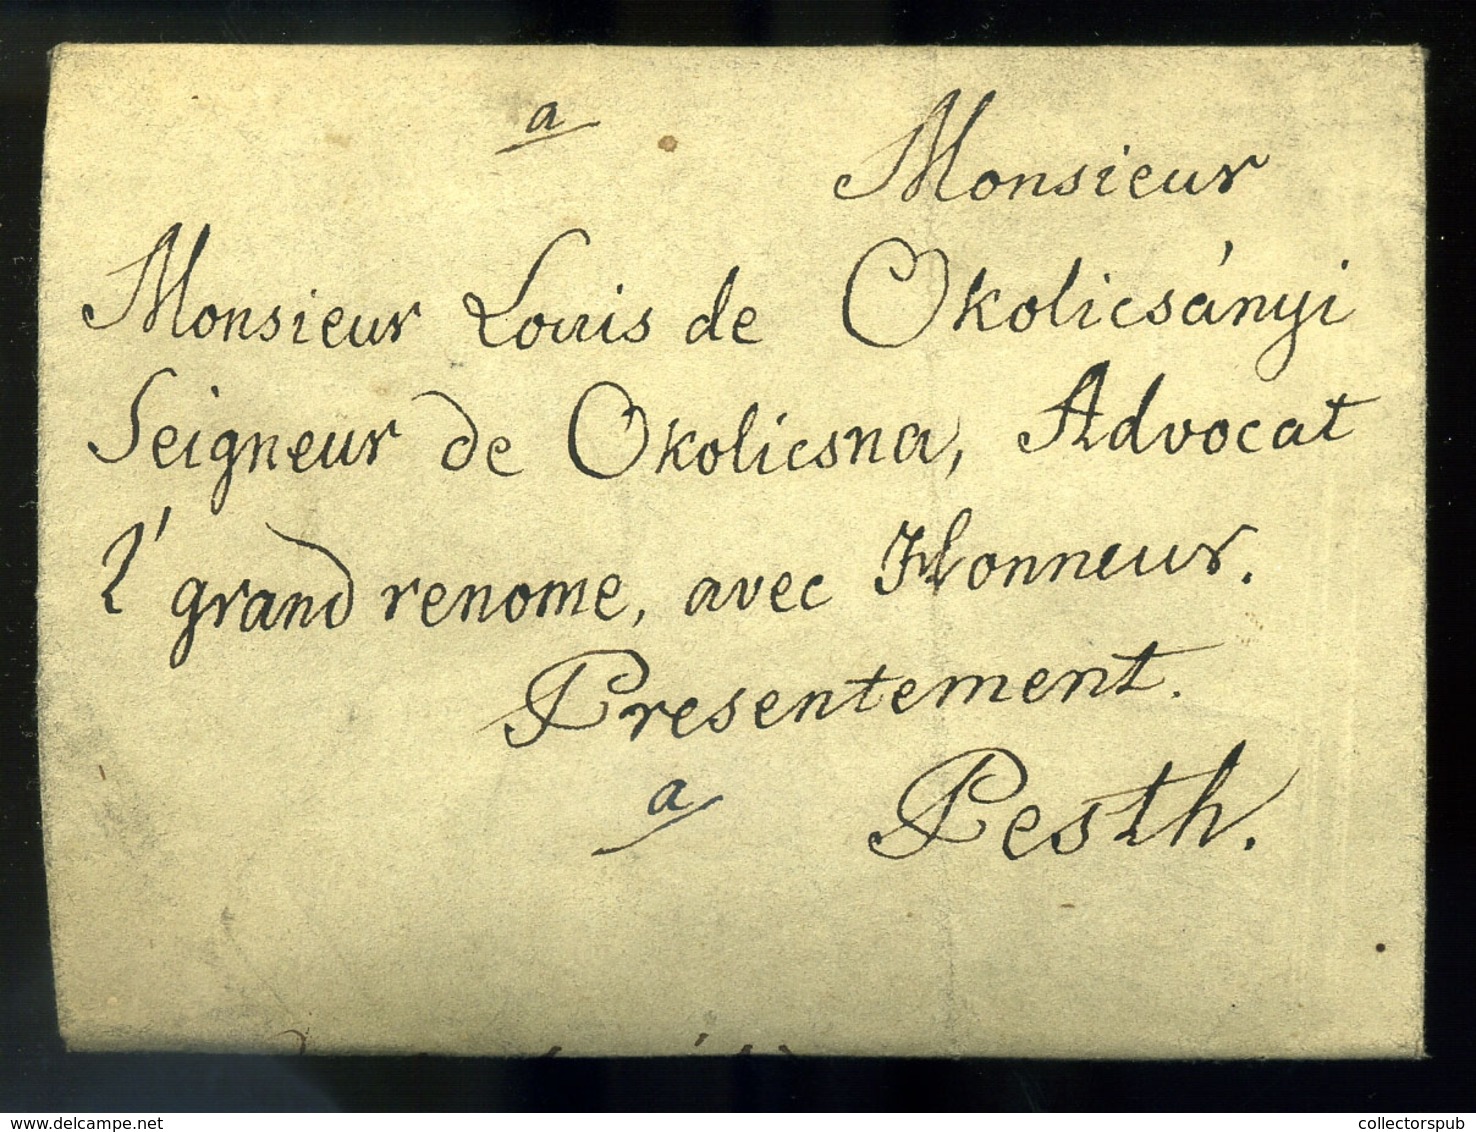 a
Monsieur
Monsieur Louis de Okolicsányi
Seigneur de Okolicsna, Advocat
l' grand renome, avec Honneur.
Presentement.
a Pesth.
collectorspub